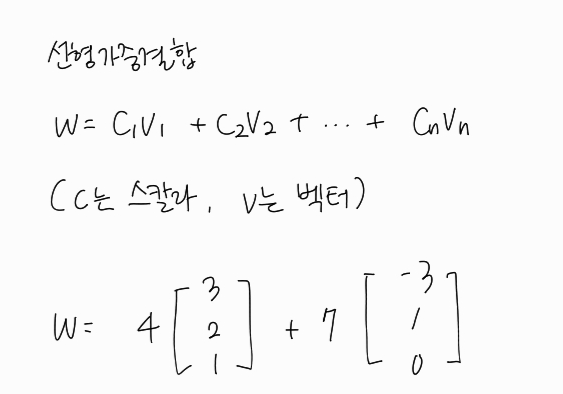 선형가중결합
W = C₁V₁ + C₂V₂ + ... + CₙVₙ
(C는 스칼라, V는 벡터)
W = 4 [3 2 1] + 7 [-3 1 0]